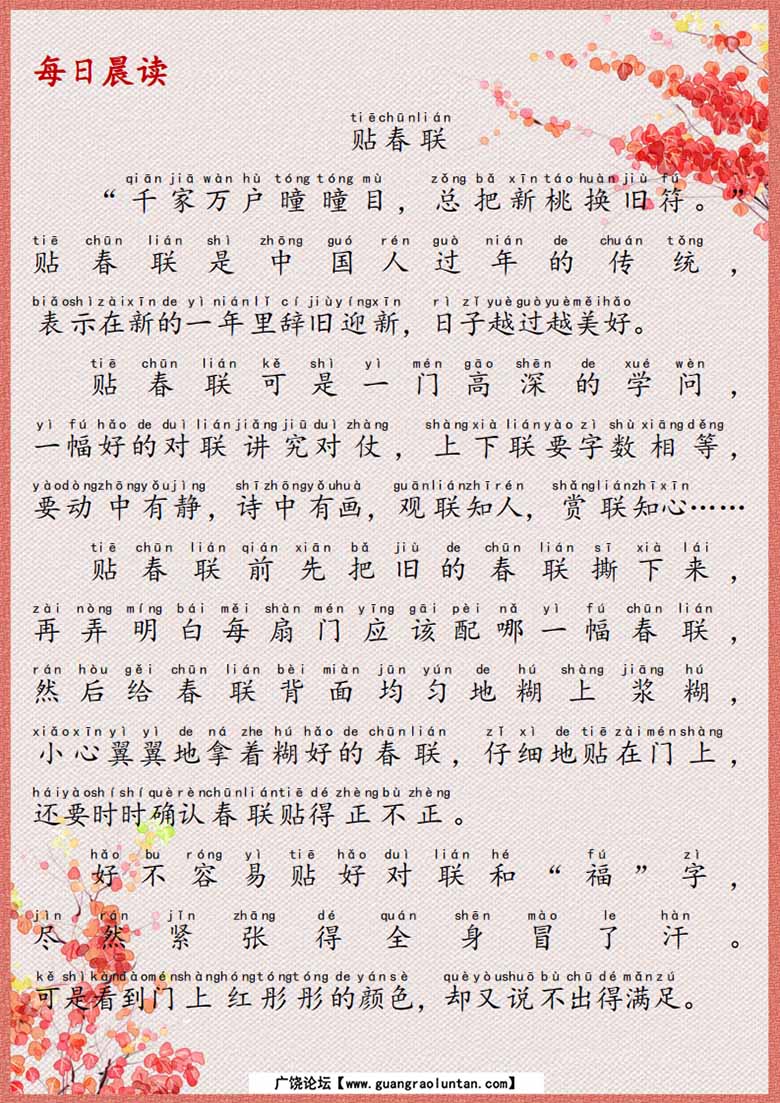 每日晨读
tiē chūn lián
贴春联
qiān jiā wàn hù tóng tóng mù zǒng bǎ xīn táo huàn jiù fú
“千家万户瞳瞳目，总把新桃换旧符。”
tiē chūn lián shì zhōng guó rén guò nián de chuán tǒng
贴春联是中国人过年的传统，
biǎo shì zài xīn de yì nián lǐ cí jiù yíng xīn rì zǐ yuè guò yuè měi hǎo
表示在新的一年里辞旧迎新，日子越过越美好。
tiē chūn lián kě shì yì mén gāo shēn de xué wèn
贴春联可是一门高深的学问，
yì fú hǎo de duì lián jiǎng jiū duì zhàng shàng xià lián yào zì shù xiāng děng
一幅好的对联讲究对仗，上下联要字数相等，
yào dòng zhōng yǒu jìng shī zhōng yǒu huà guān lián zhī rén shǎng lián zhī xīn
要动中有静，诗中有画，观联知人，赏联知心……
tiē chūn lián qián xiān bǎ jiù de chūn lián sī xià lái
贴春联前先把旧的春联撕下来，
zài nòng míng bái měi shàn mén yīng gāi pèi nǎ yì fú chūn lián
再弄明白每扇门应该配哪一幅春联，
rán hòu gěi chūn lián bèi miàn jūn yún de hú shàng jiāng hú
然后给春联背面均匀地糊上浆糊，
xiǎo xīn yì yì de ná zhe hú hǎo de chūn lián zǐ xì de tiē zài mén shàng
小心翼翼地拿着糊好的春联，仔细地贴在门上，
hái yào shí shí què rèn chūn lián tiē dé zhèng bù zhèng
还要时时确认春联贴得正不正。
hǎo bu róng yì tiē hǎo duì lián hé fú zì
好不容易贴好对联和“福”字，
jìn rán jǐn zhāng dé quán shēn mào le hàn
尽然紧张得全身冒了汗。
kě shì kàn dào mén shàng hóng tóng tóng de yán sè què yòu shuō bù chū dé mǎn zú
可是看到门上红彤彤的颜色，却又说不出得满足。
广饶论坛【www.guangraoluntan.com】